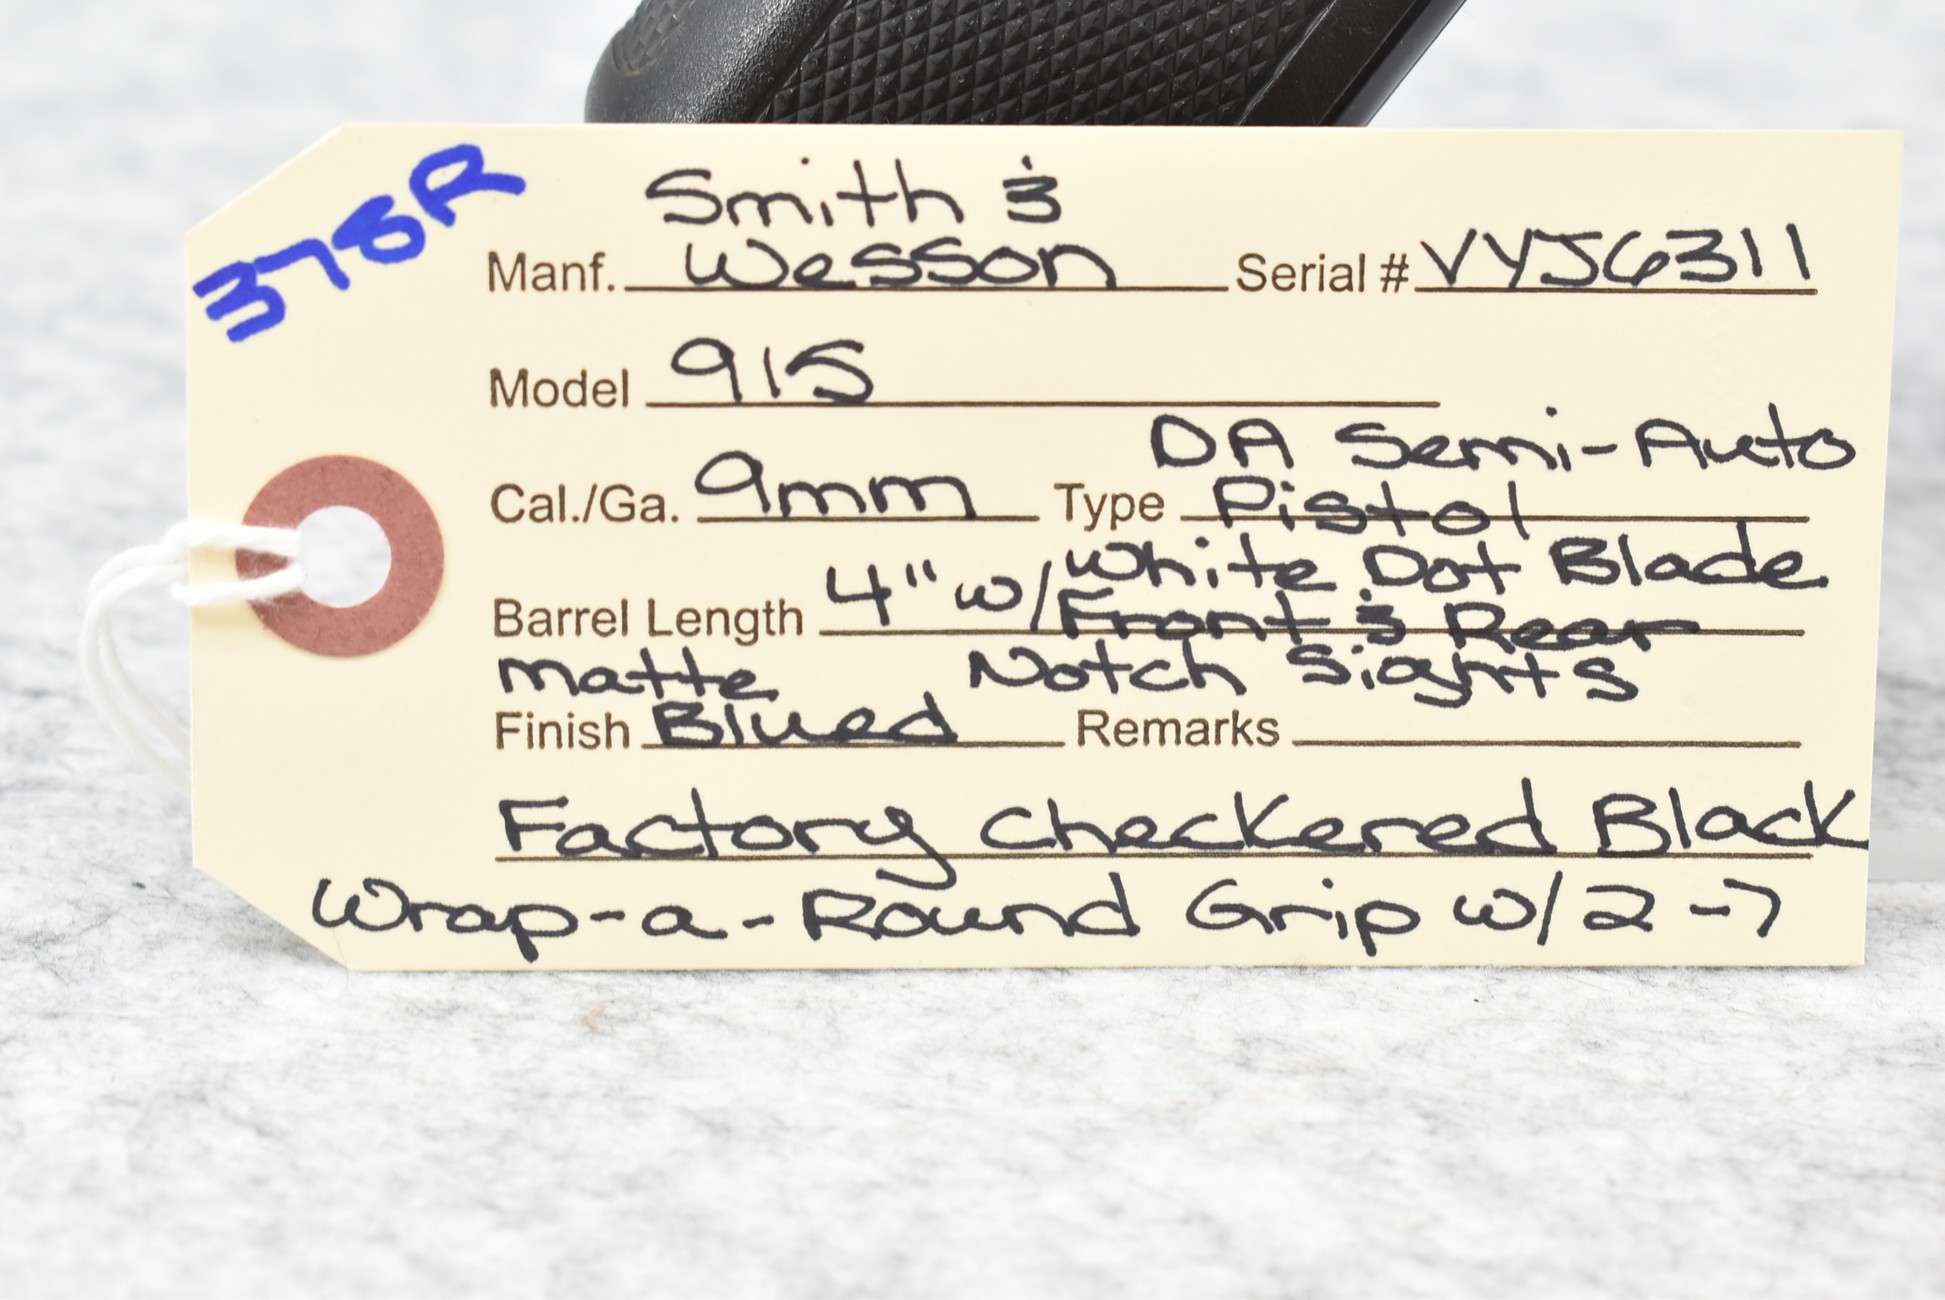 378R
Smith &
Manf. Wesson Serial # VYJ6311
Model 915
DA Semi-Auto
Cal./Ga. 9mm Type Pistol
White Dot Blade
Barrel Length 4" w/ Front & Rear
matte Notch Sights
Finish Blued Remarks
Factory Checkered Black
Wrap-a-Round Grip w/2 →